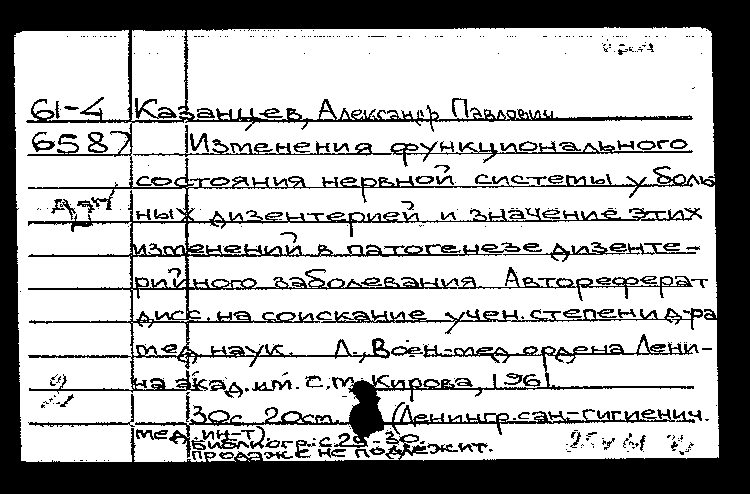 61-4 Казанцев, Александр Павлович
6587 Изменения функционального
состояния нервной системы у боль
ных дизентерией и значение этих
изменений в патогенезе дизенте-
рийного заболевания. Автореферат
дисс. на соискание учен. степени д-ра
мед наук. Л., Воен-мед ордена Лени-
на акад. им. С.М. Кирова, 1961.
30с 20см. (Ленингр. сан-гигиенич.
мед ин-т)
Библиогр.: с.29-30.
продаже не подлежит.